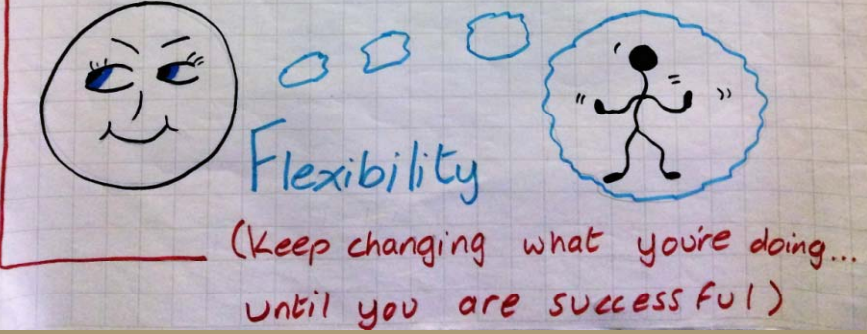 Flexibility
(Keep changing what you're doing...
until you are successful)